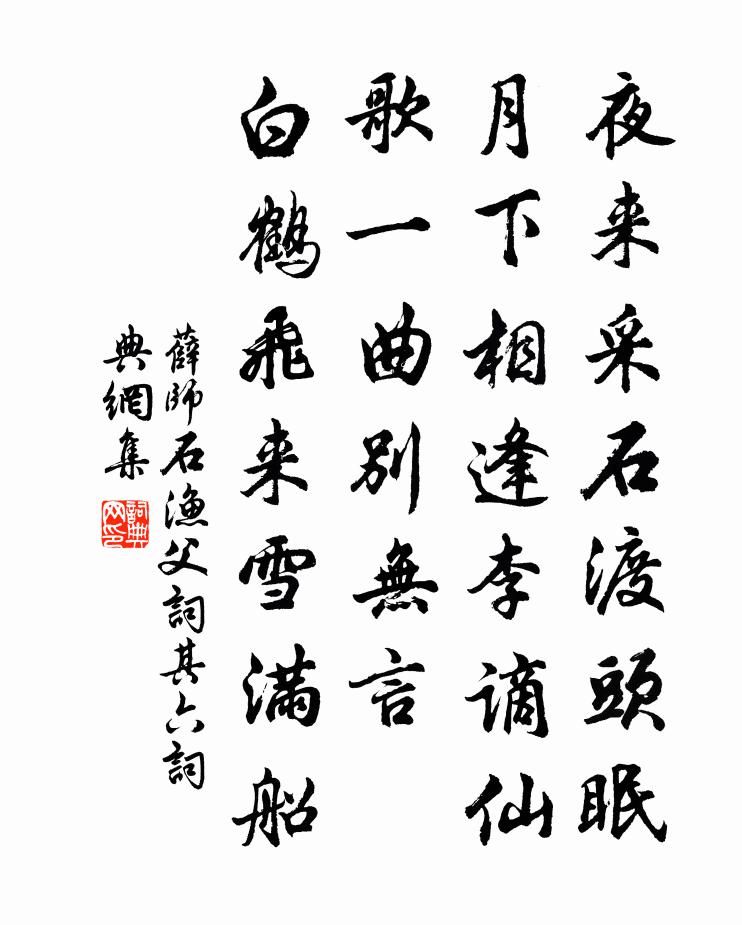 夜来采石渡頭眠
月下相逢李謫仙
歌一曲别無言
白鶴飛来雪滿船
薛師石漁父詞其六詞
典網集
詞典网印